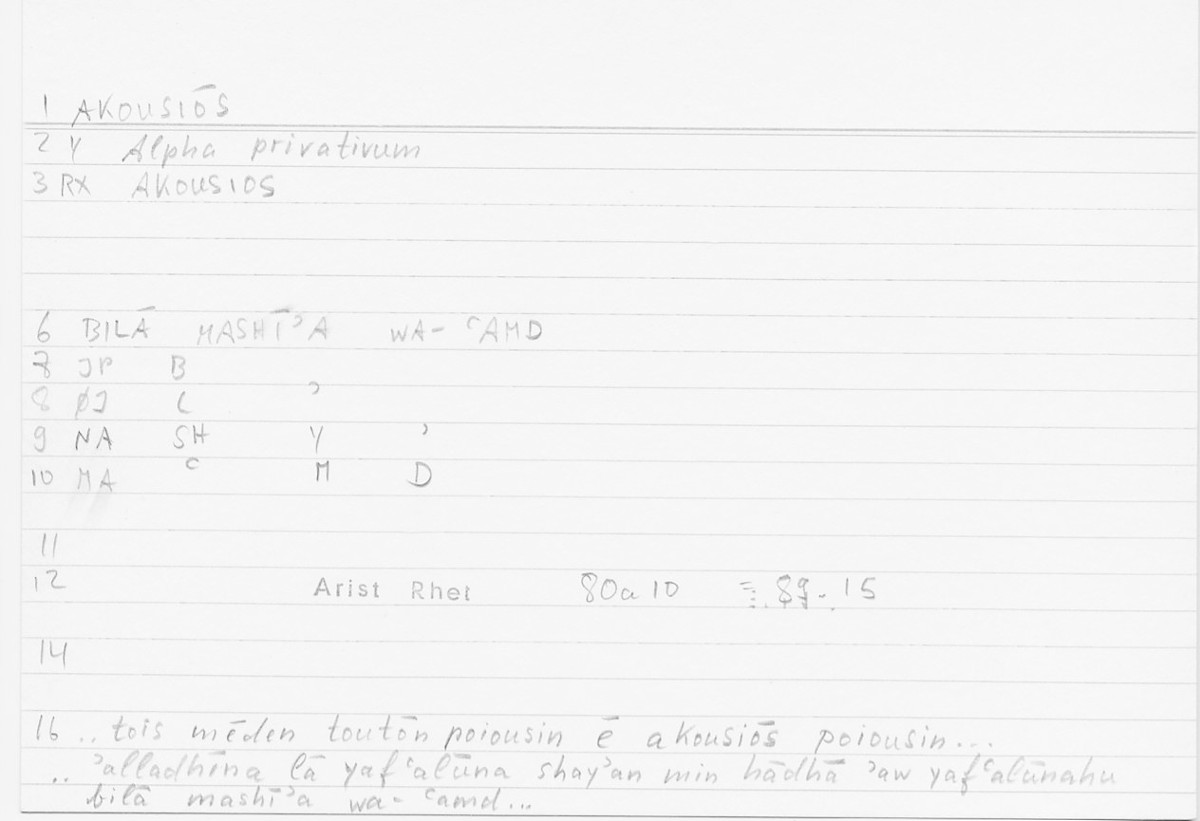 1 AKOUSIŌS
2 Y Alpha privativum
3 RX AKOUSIOS
6 BILĀ MASHĪʾA WA- ʿAMD
7 JP B
8 ØJ L ʾ
9 NA SH Y ʾ
10 MA ʿ M D
11
12 Arist Rhet 80a10 89.15
14
16 .. tois mēden toutōn poiousin ē akousiōs poiousin...
.. ʾalladhīna lā yafʿalūna shayʾan min hādhā ʾaw yafʿalūnahu
bilā mashīʾa wa- ʿamd...